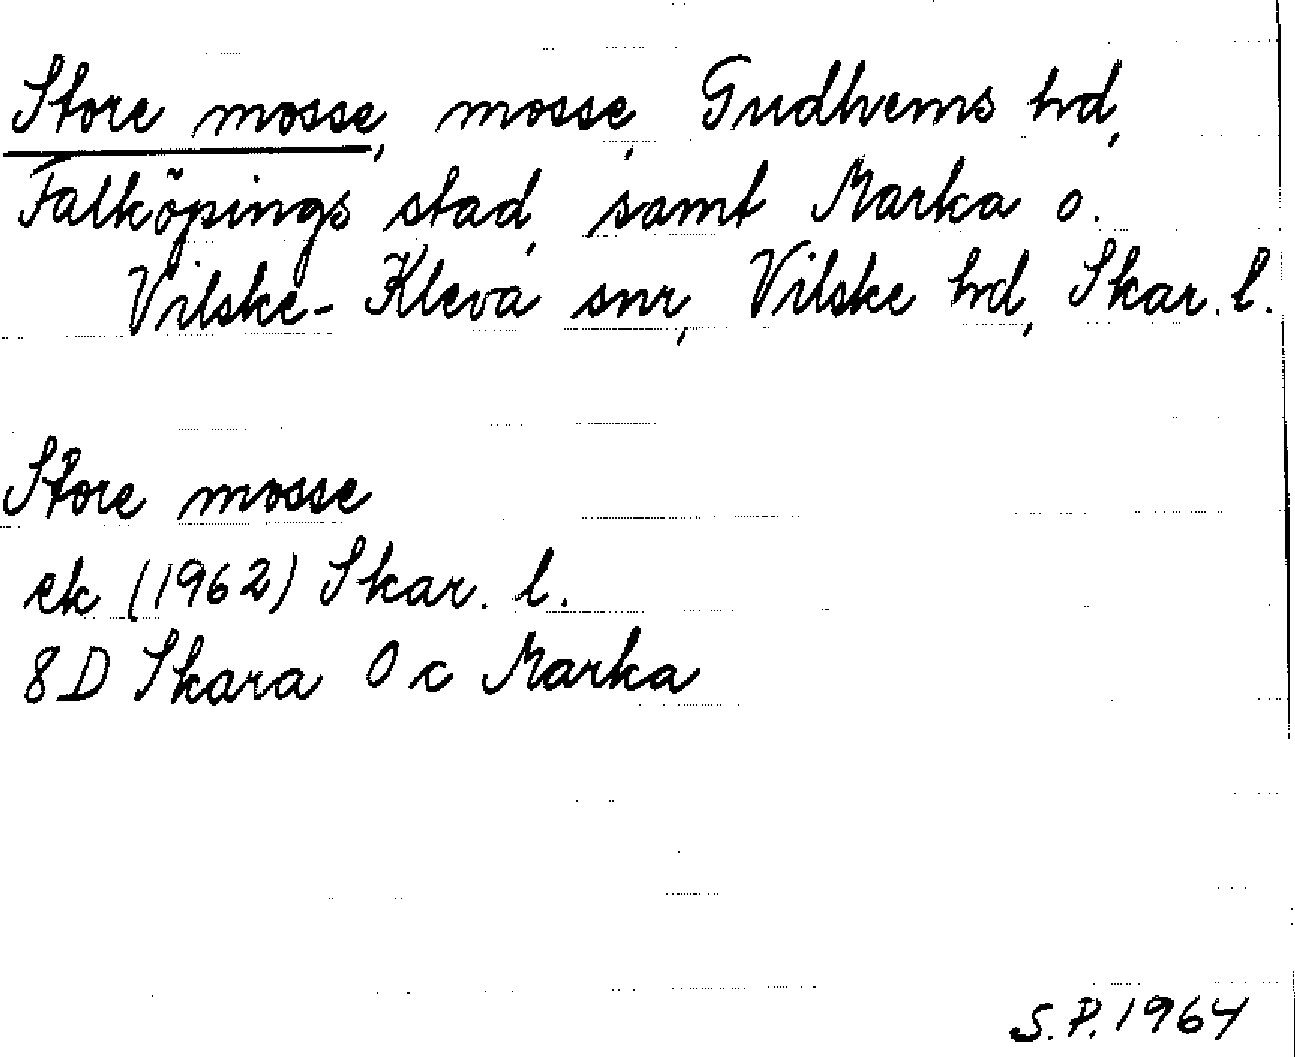 Store mosse, mosse, Gudhems hd,
Falköpings stad, samt Marka o.
Vilske-Kleva snr, Vilske hd, Skar. l.
Store mosse
ek (1962) Skar. l.
8D Skara 0 c Marka
S.P. 1964